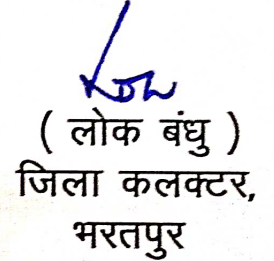 ( लोक बंधु )
जिला कलक्टर,
भरतपुर